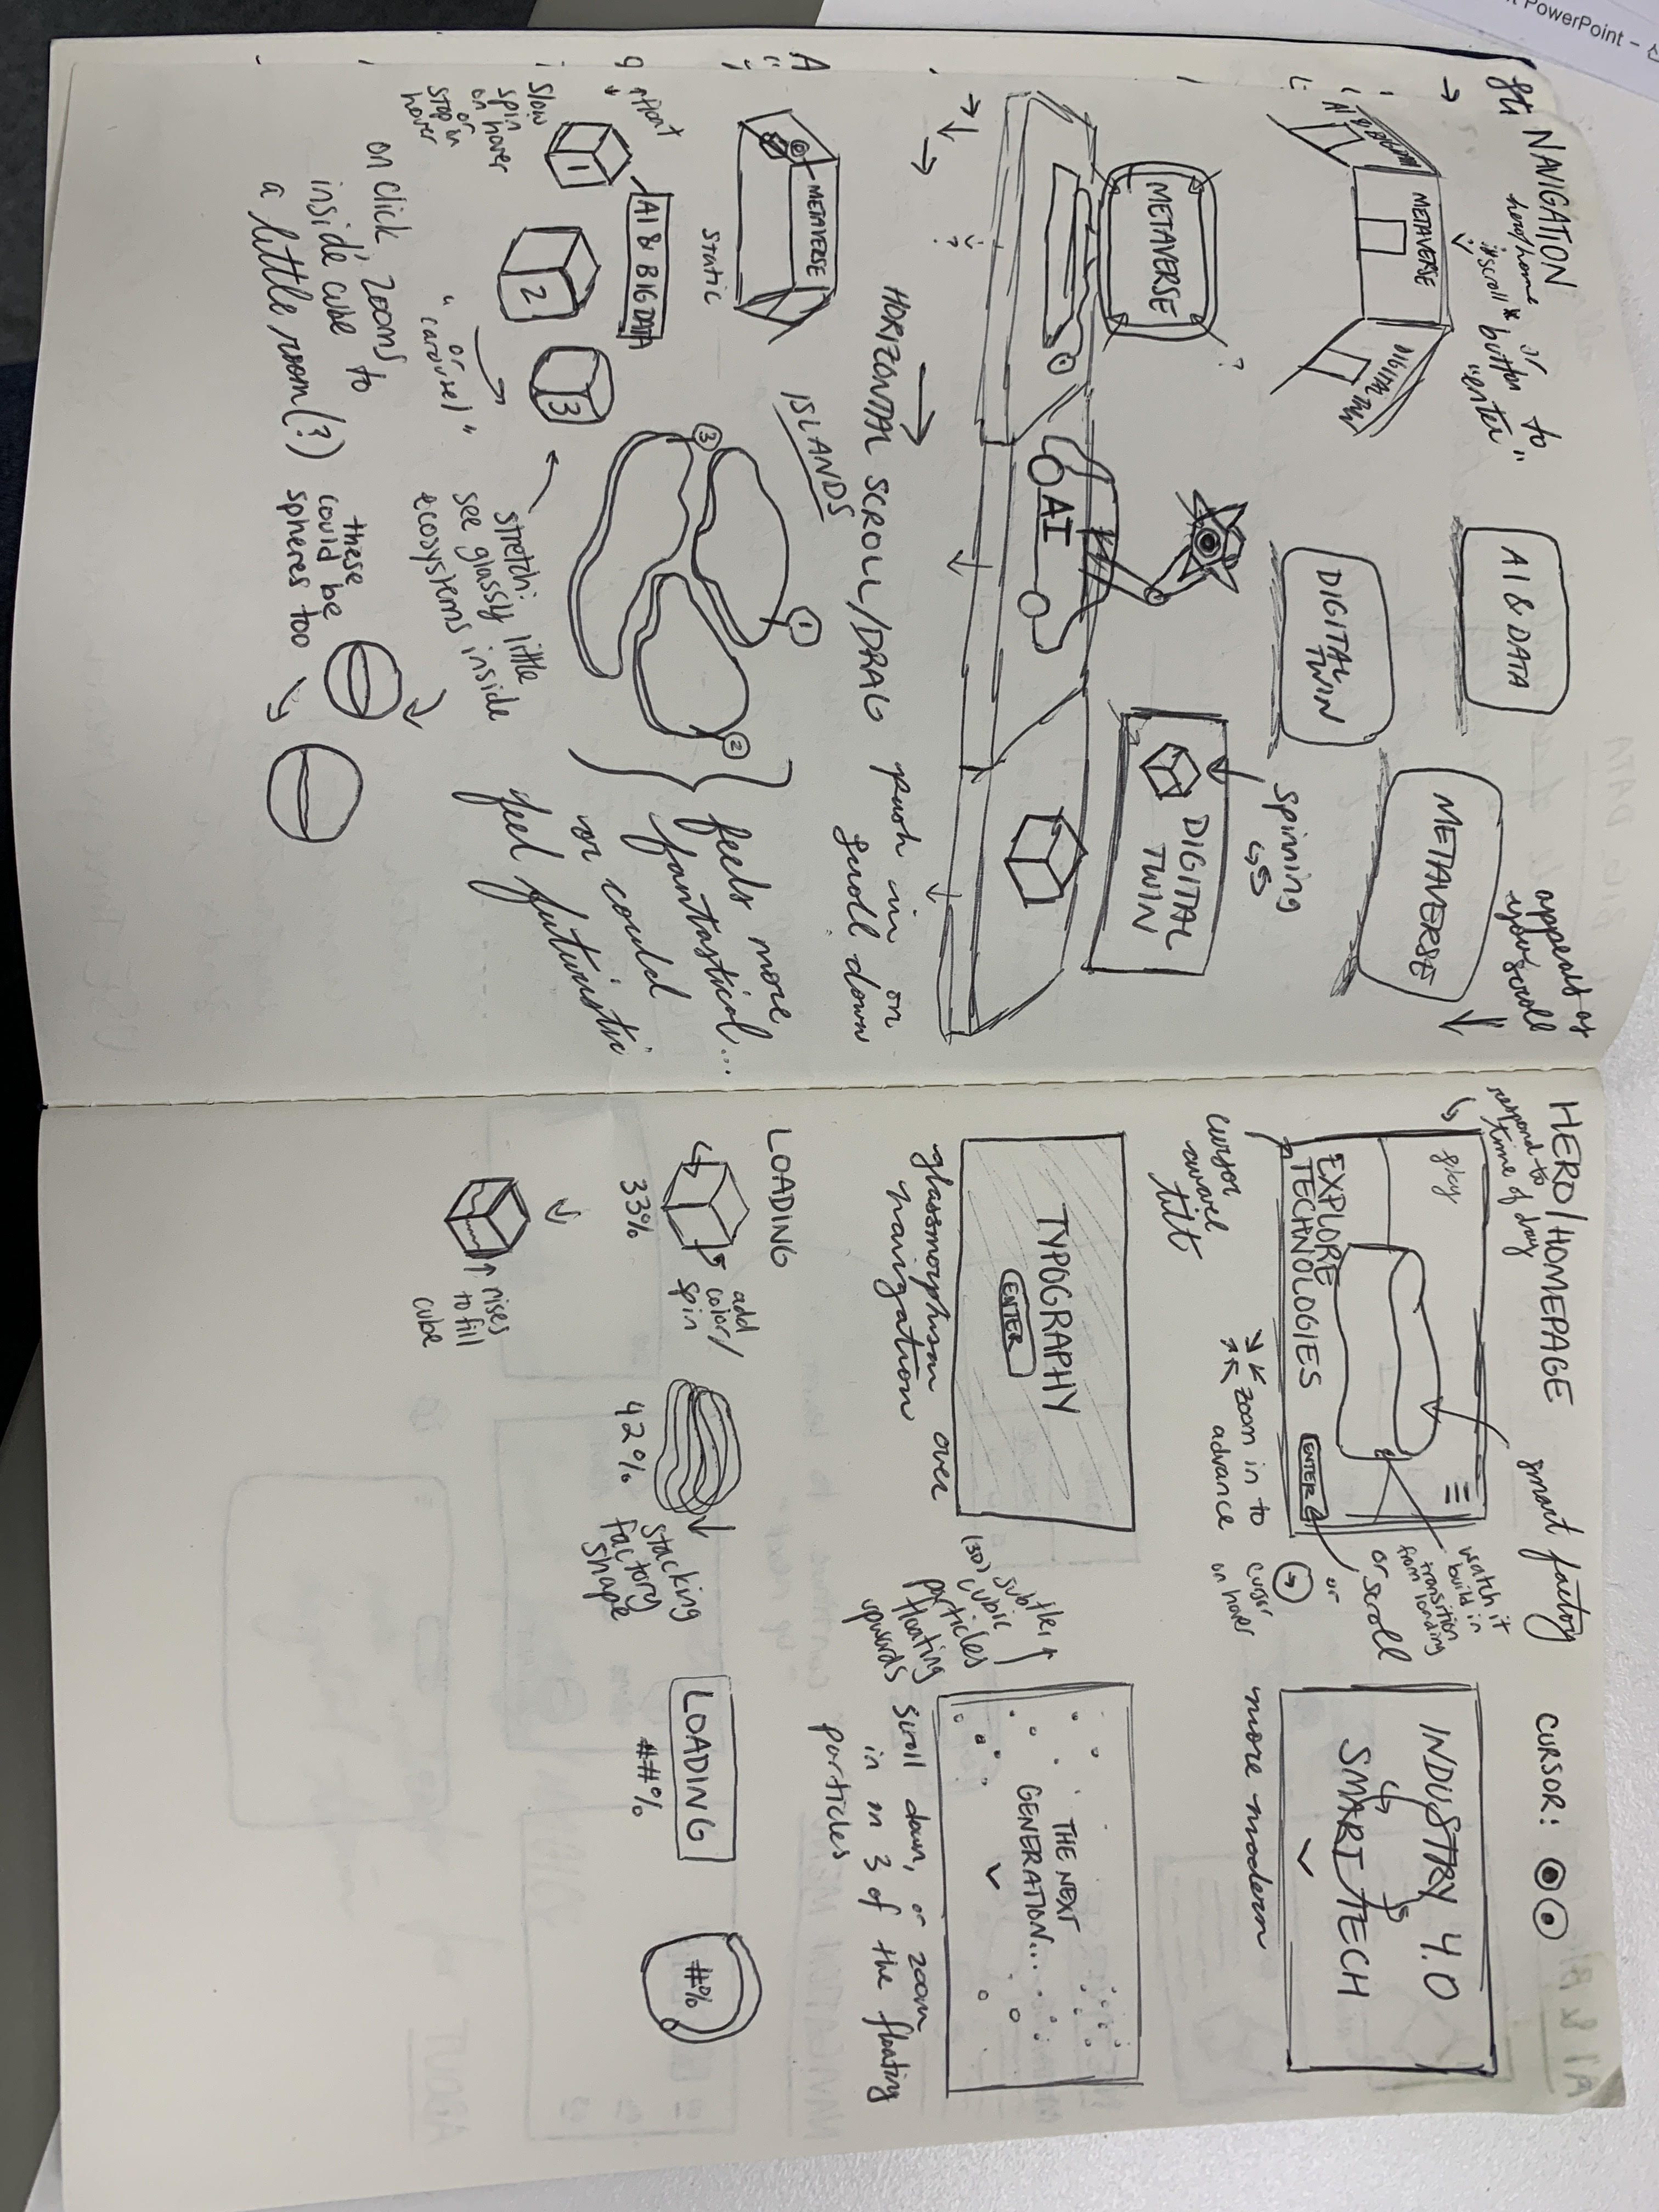 PowerPoint -
NAVIGATON
hero/home or
*scroll* button to
"enter"
METAVERSE
METAVERSE
DIGITAL TW
AI & DATA
DIGITAL
TWIN
METAVERSE
appears as
you scroll
METAVERSE
?
AI
DIGITAL
TWIN
spinning
HORIZONTAL SCROLL/DRAG
push in on
scroll down
METAVERSE
static
ISLANDS
1
2
3
feels more
fantastical...
or could
feel futuristic
float
AI & BIG DATA
1
2
3
slow
spin
on hover
or
stop on
hover
or
"carousel"
stretch:
see glassy little
ecosystems inside
on click, zooms
inside cube to
a little room(?)
these
could be
spheres too
HERO/HOMEPAGE
smart factory
CURSOR:
respond to
time of day
sky
EXPLORE
TECHNOLOGIES
ENTER
watch it
build in
transition
from loading
or scroll
or
cursor
on hover
cursor
swivel
tilt
zoom in to
advance
INDUSTRY 4.0
SMART TECH
more modern
TYPOGRAPHY
ENTER
glassmorphism over
navigation
(3D) subtle
cubic
particles
floating
upwards
THE NEXT
GENERATION...
scroll down, or zoom
in on 3 of the floating
particles
LOADING
33%
add
color/
spin
rises
to fill
cube
42%
stacking
factory
shape
LOADING
##%
#%